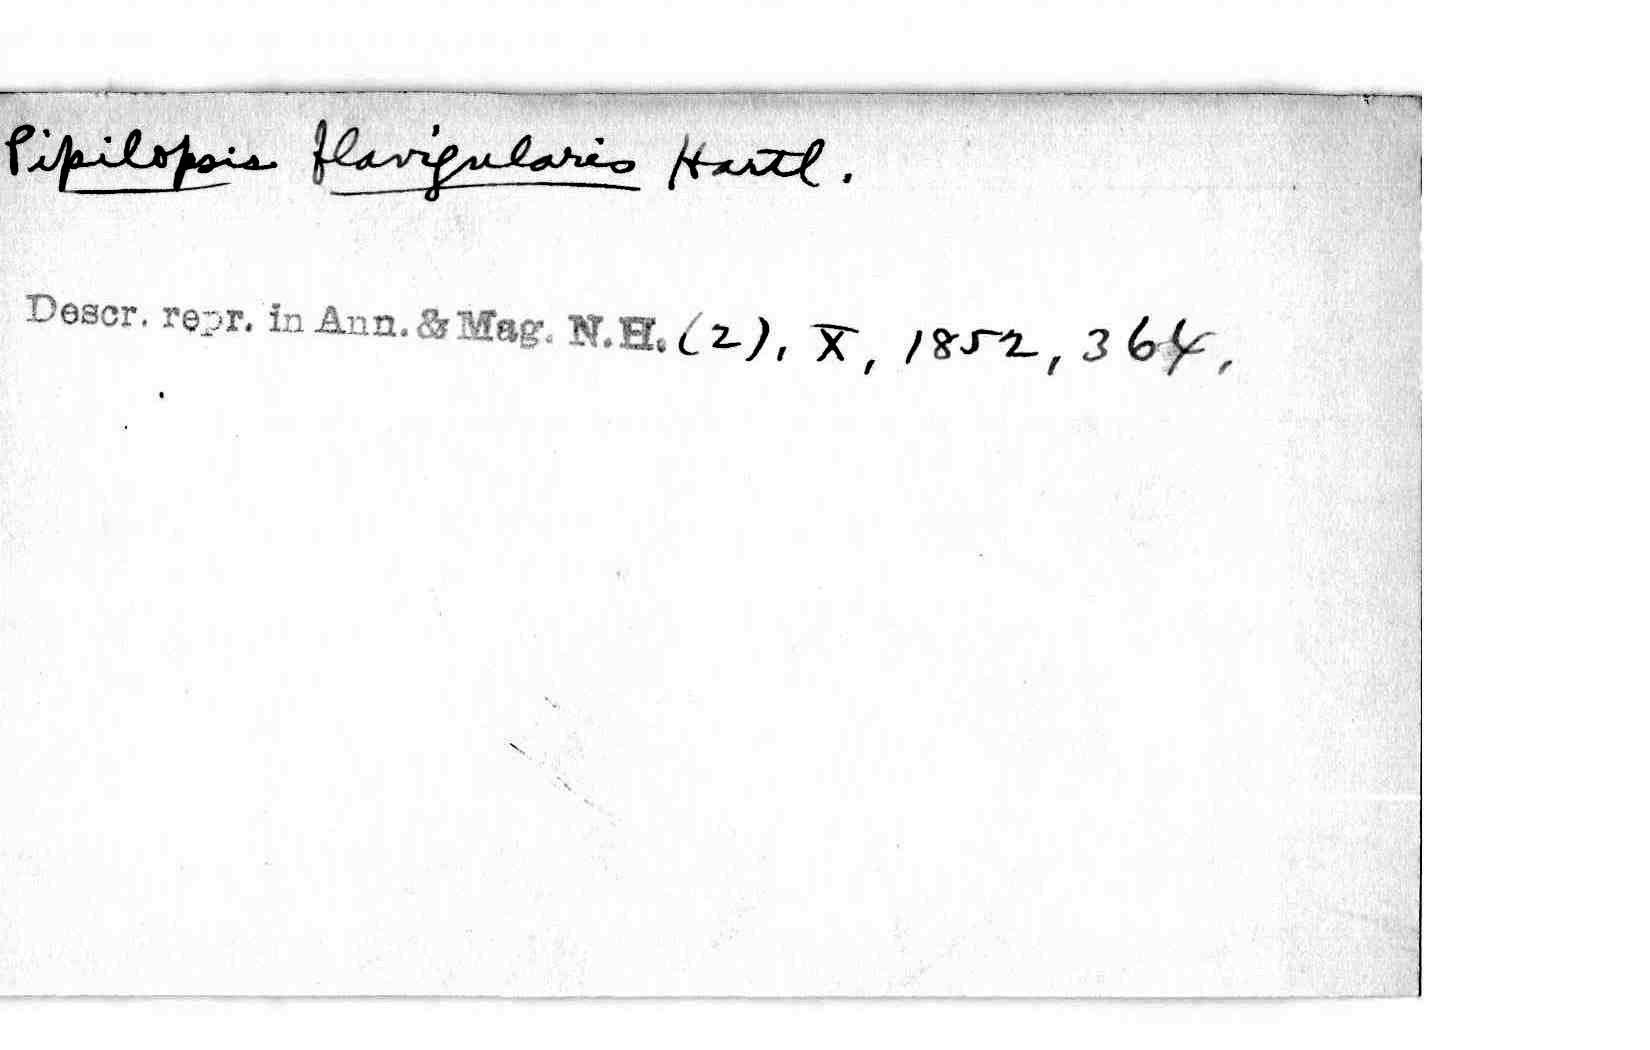 Pipilopsis flavigularis Hartl.
Descr. repr. in Ann. & Mag. N.H. (2), X, 1852, 364,